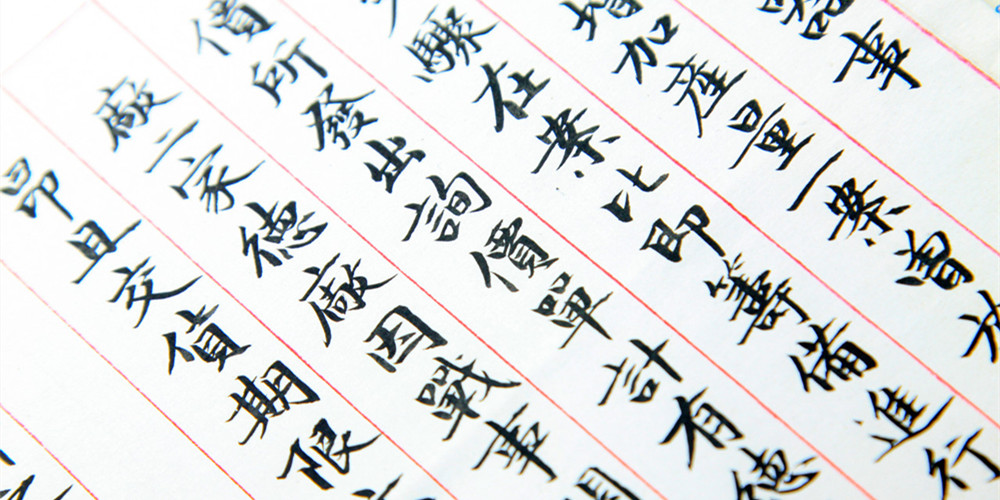 器事
增加產量一案曾
驟在案比即籌備進行
價所發出詢價單計有德
廠二家德廠因戰事
昂且交貨期限